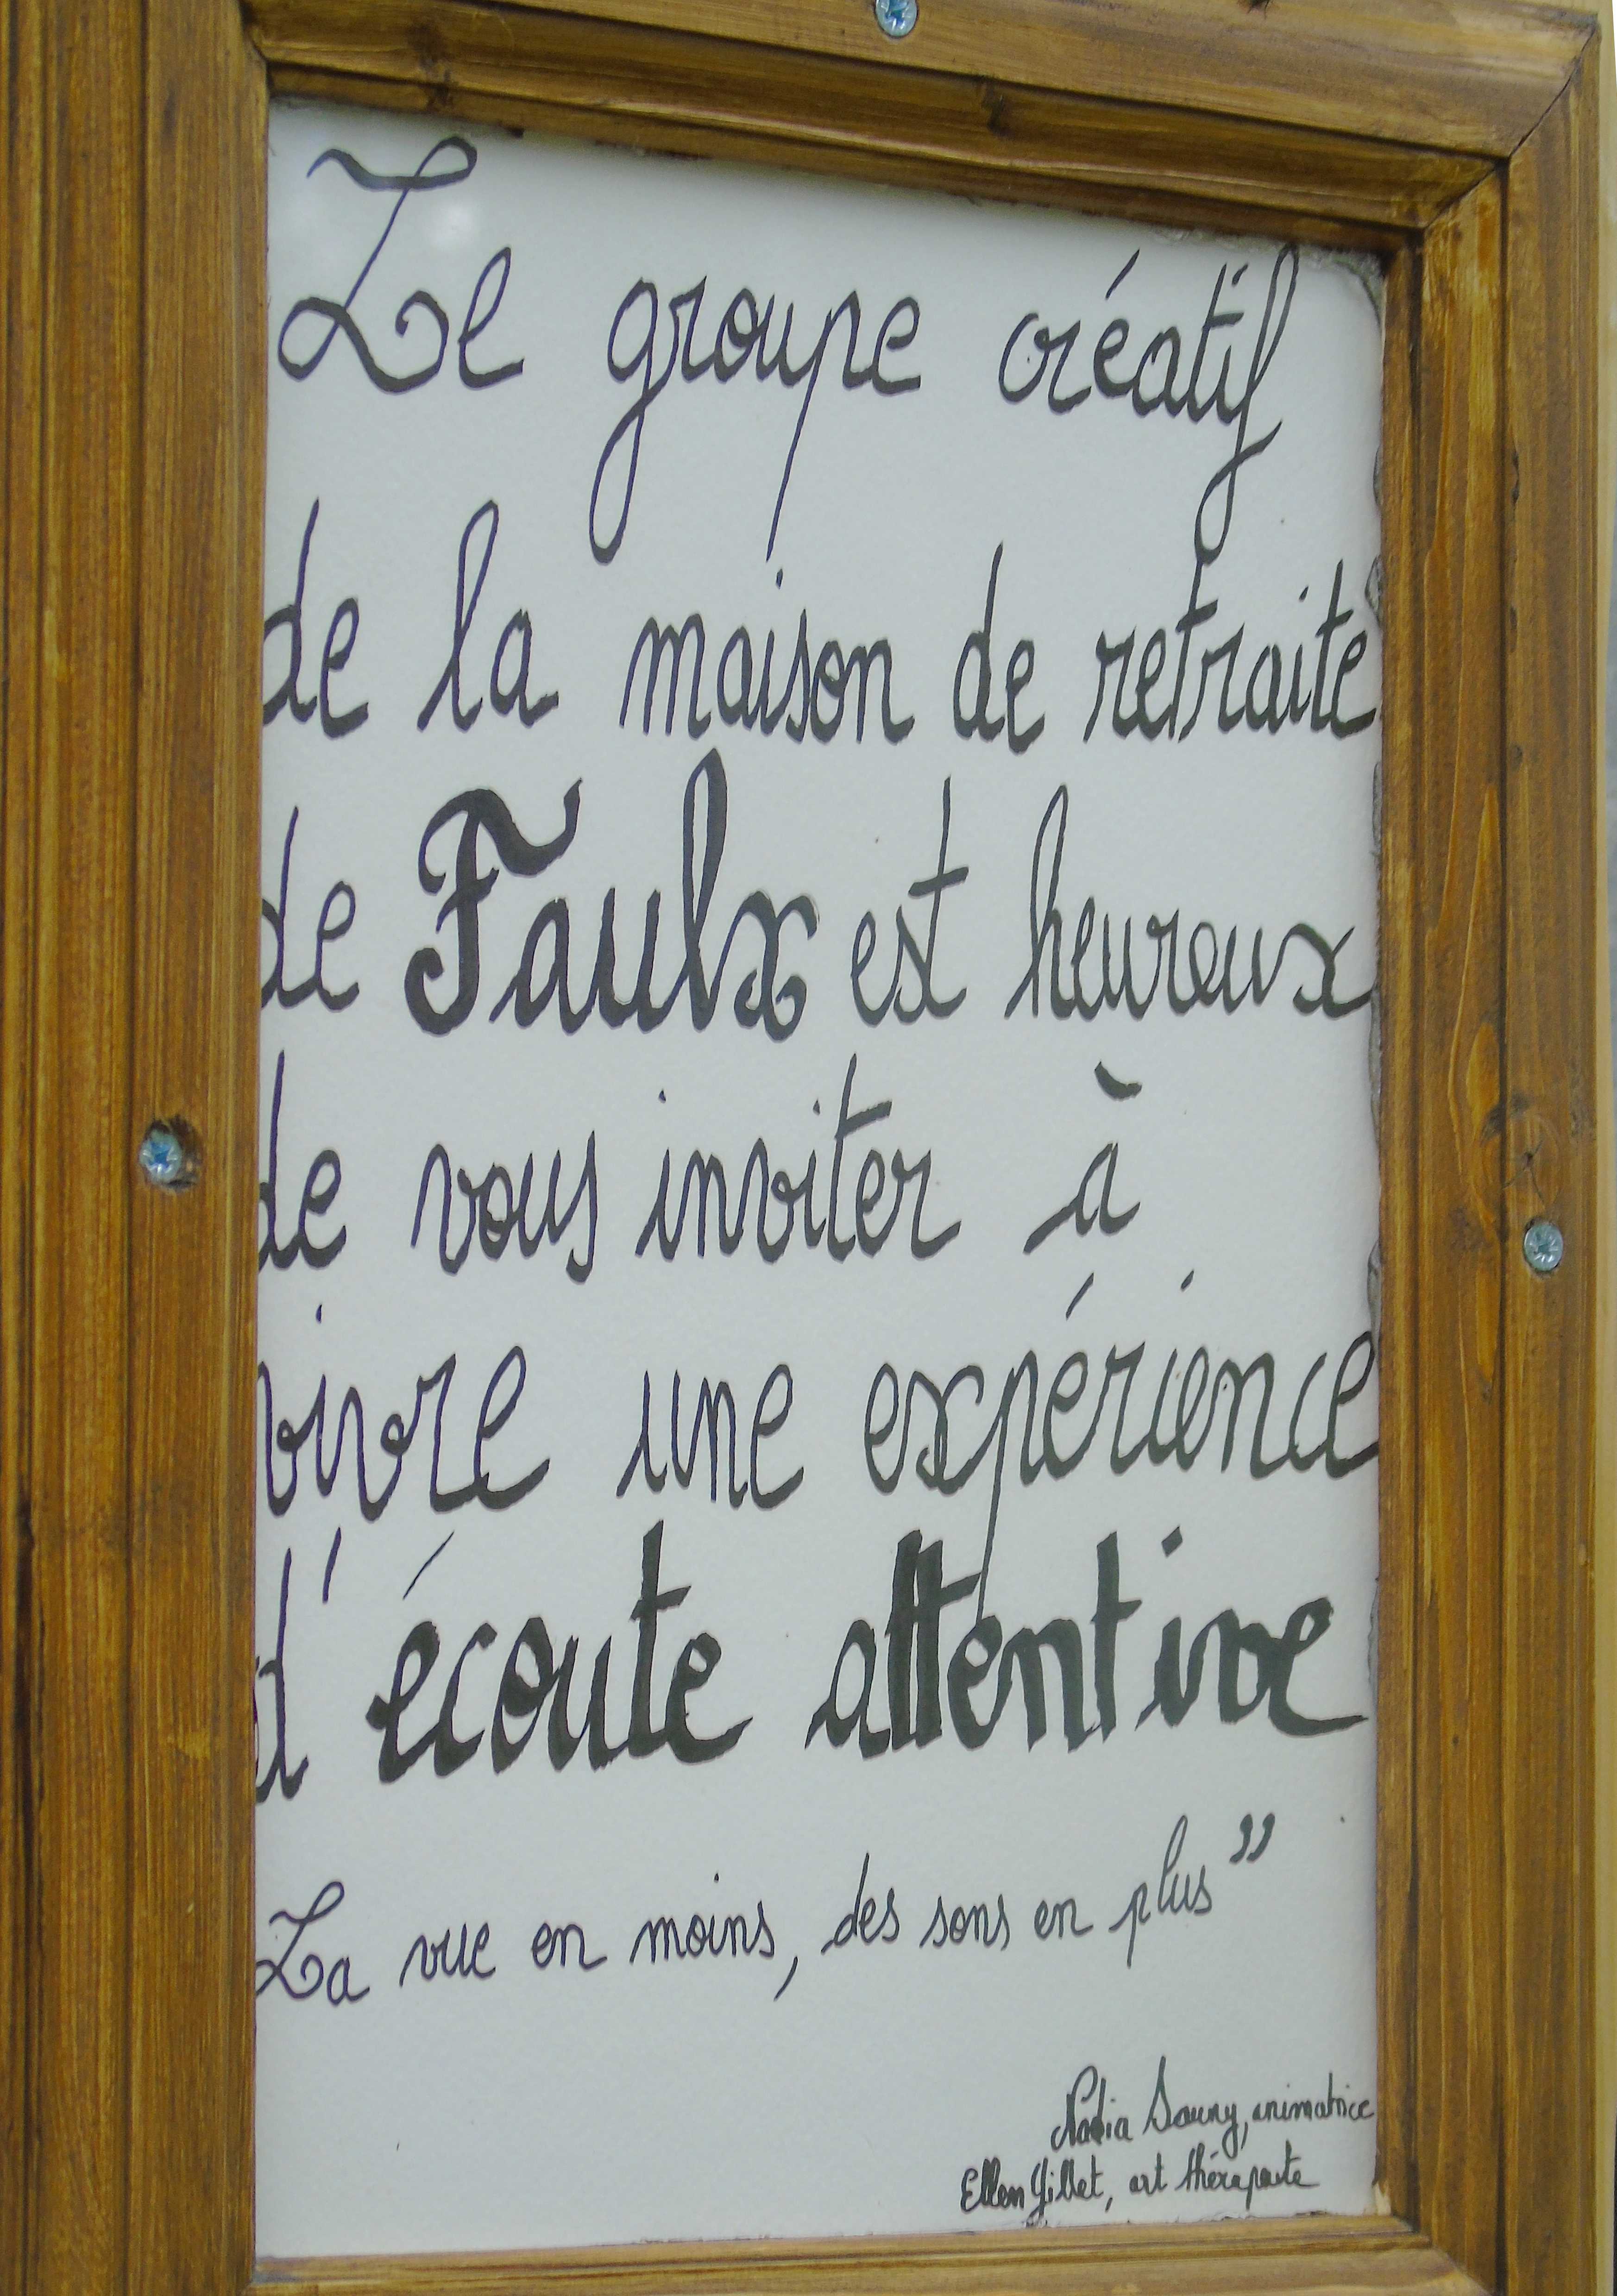 Le groupe créatif
de la maison de retraite
de Faulx est heureux
de vous inviter à
vivre une expérience
d'écoute attentive
La vue en moins, des sons en plus”
Nadia Souny, animatrice
Ellen Gillet, art thérapeute